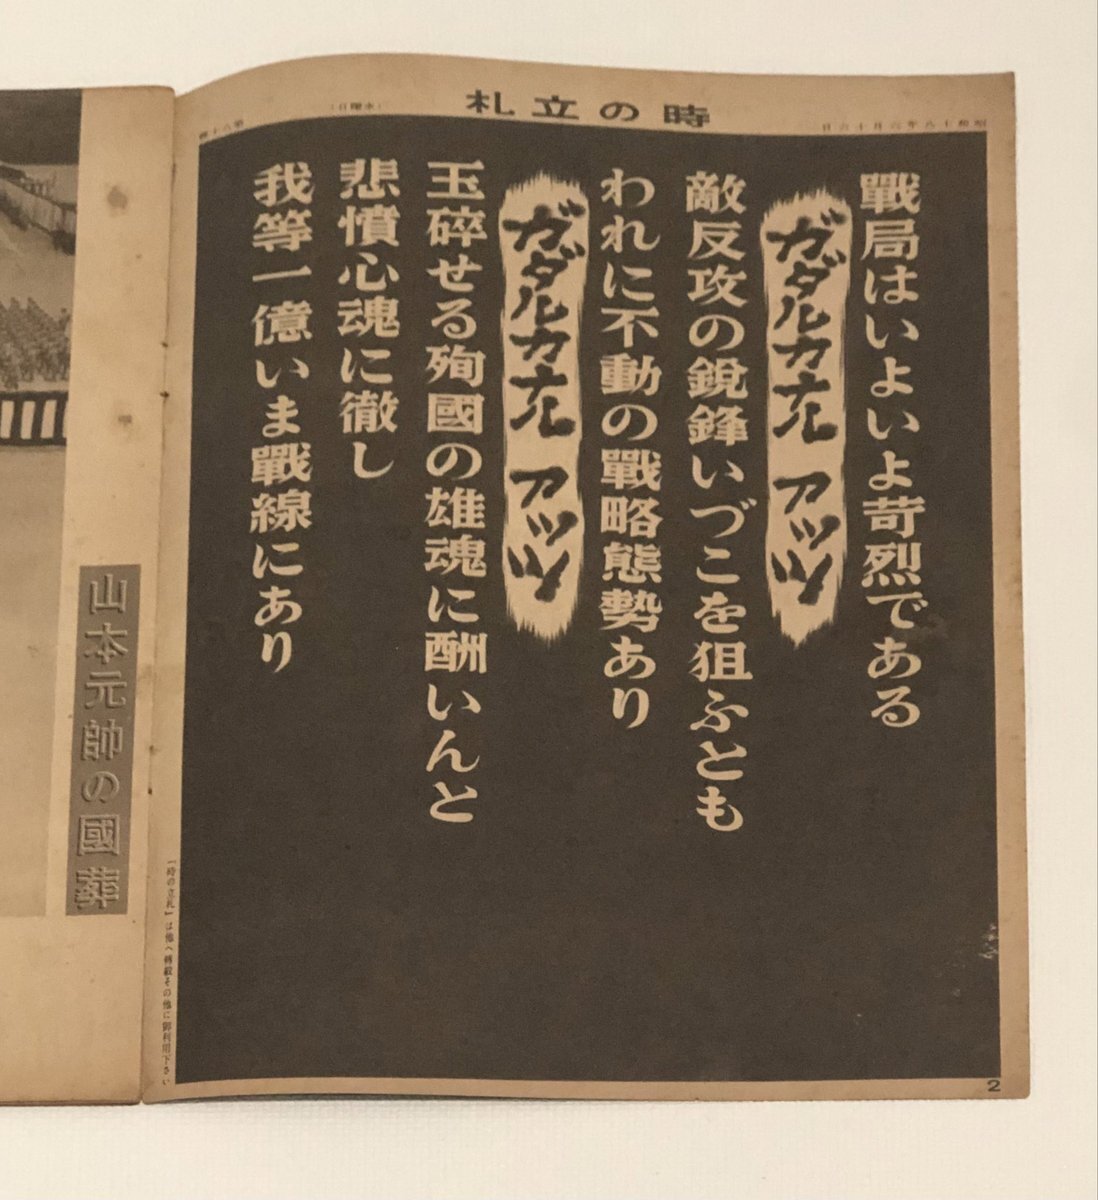 時の立札
昭和十八年六月十六日
(水曜日)
戰局はいよいよ苛烈である
ガダルカナル アッツ
敵反攻の鋭鋒いづこを狙ふとも
われに不動の戰略態勢あり
ガダルカナル アッツ
玉碎せる殉國の雄魂に酬いんと
悲憤心魂に徹し
我等一億いま戰線にあり
「時の立札」は他へ轉載その他に御利用下さい
2
山本元帥の國葬